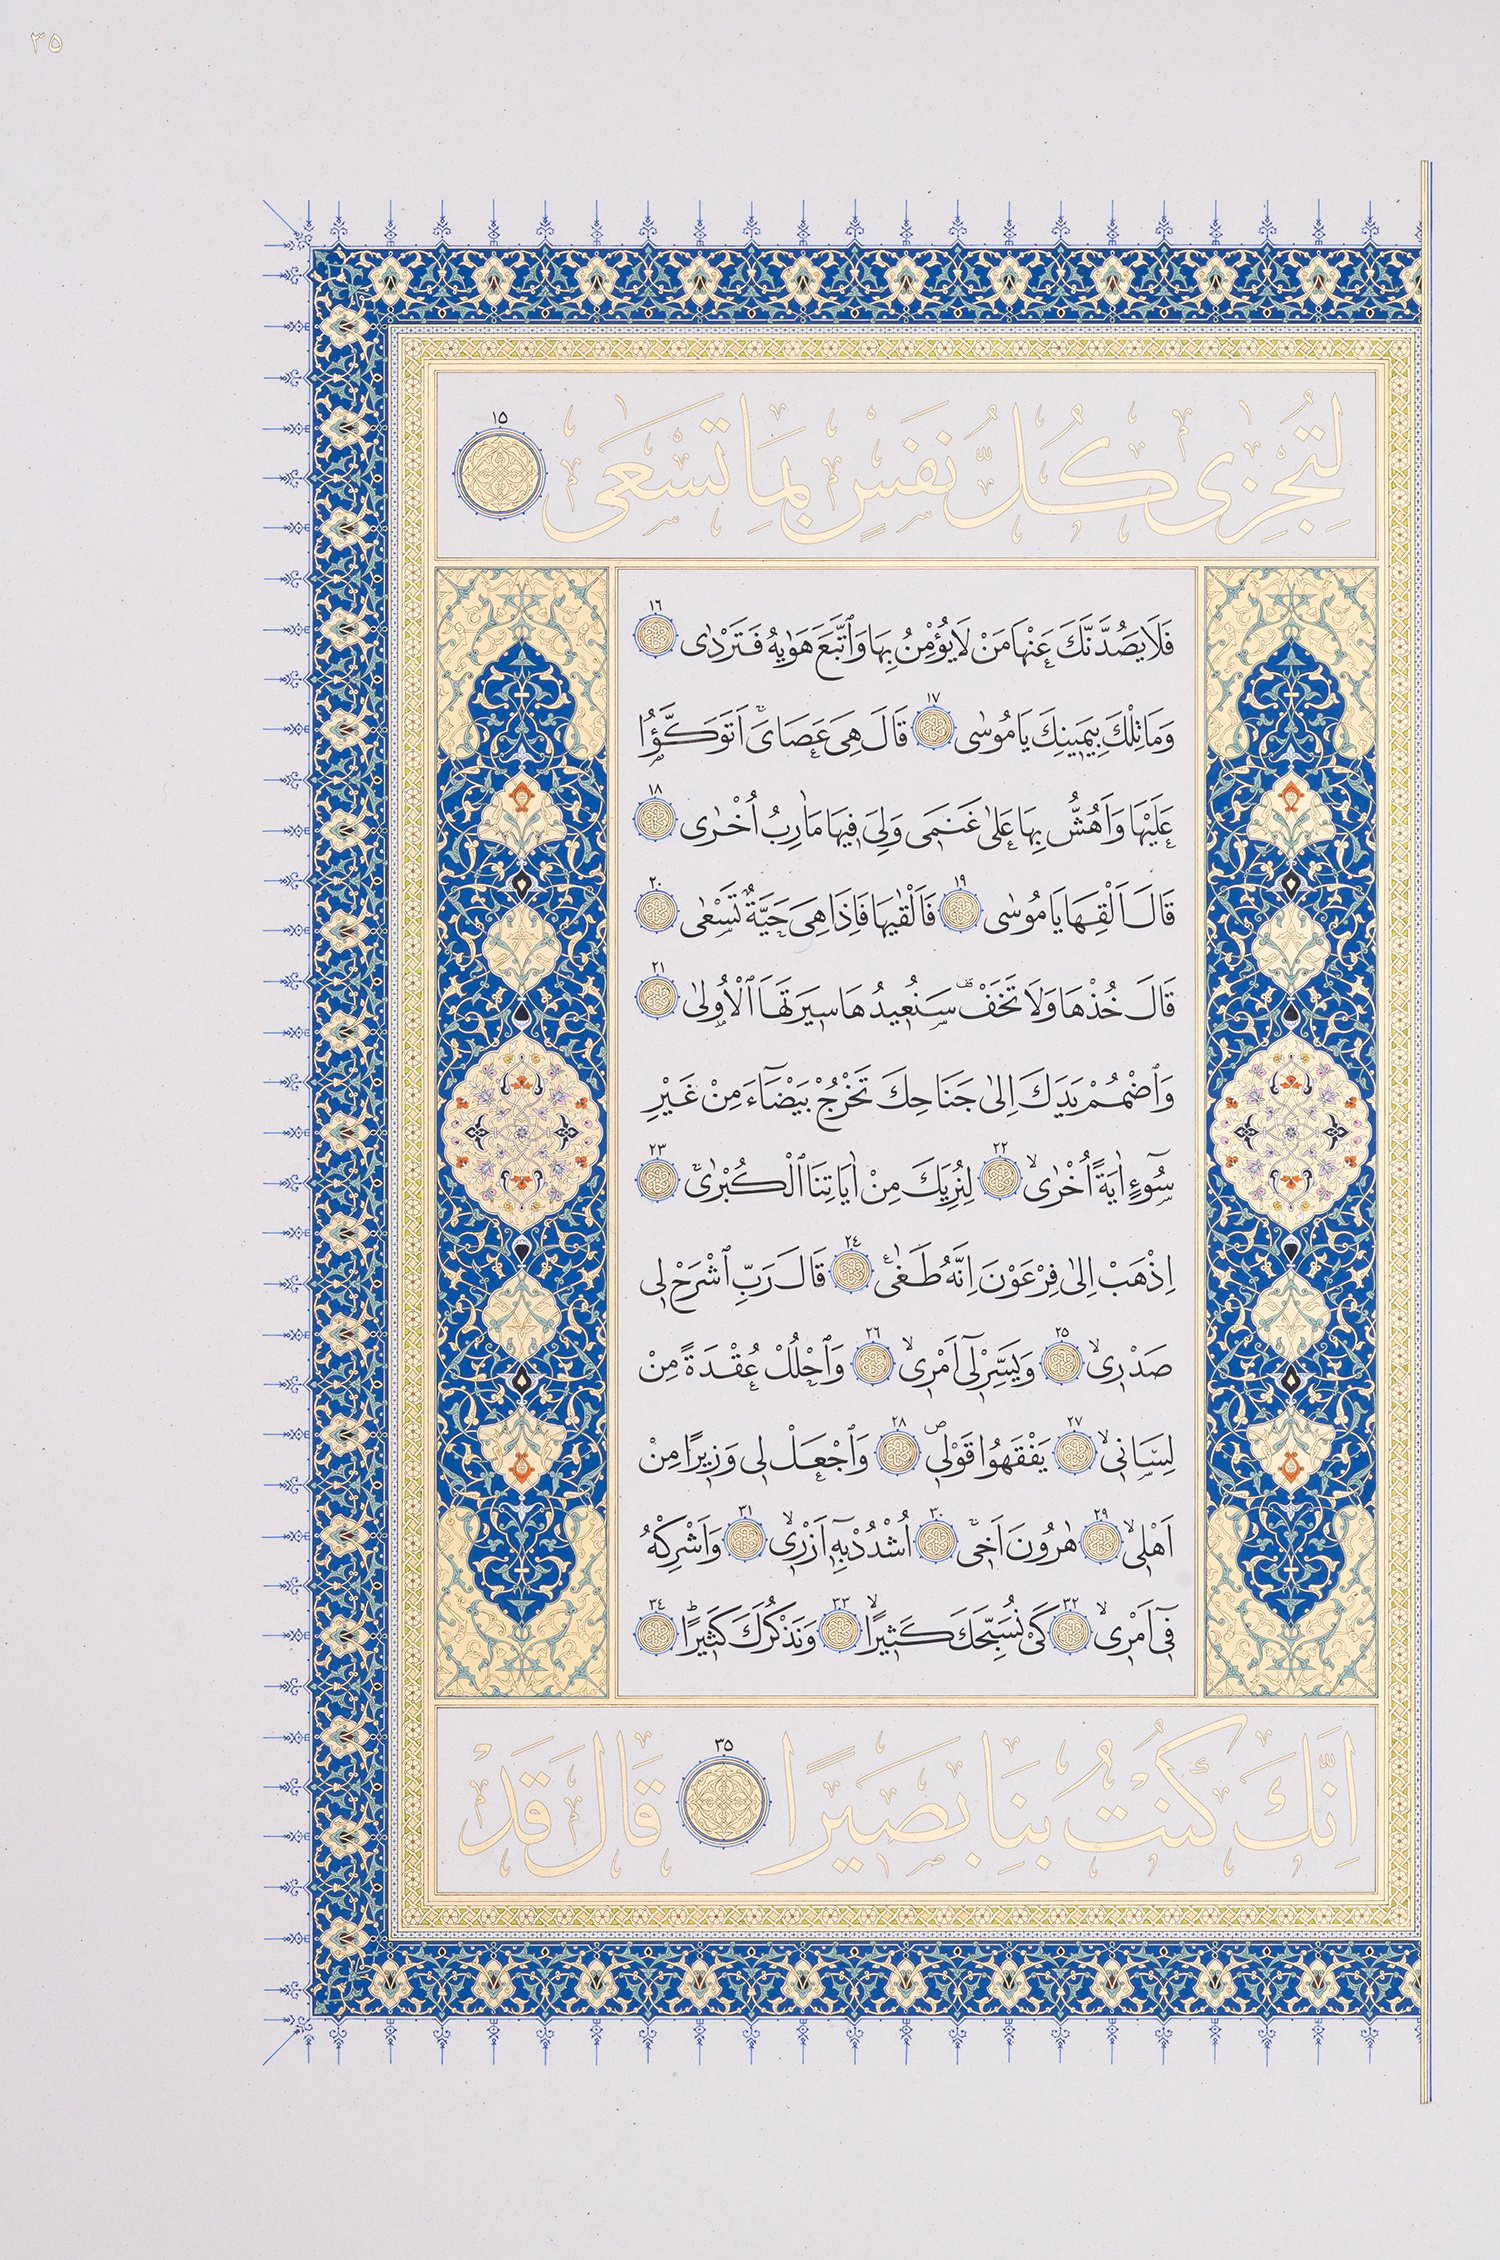 ٣٥
لِتُجْزٰى كُلُّ نَفْسٍ بِمَا تَسْعٰى ١٥
فَلَا يَصُدَّنَّكَ عَنْهَا مَنْ لَا يُؤْمِنُ بِهَا وَٱتَّبَعَ هَوٰيهُ فَتَرْدٰى ١٦
وَمَا تِلْكَ بِيَمِينِكَ يَا مُوسٰى ١٧ قَالَ هِىَ عَصَاىَۚ اَتَوَكَّؤُا
عَلَيْهَا وَاَهُشُّ بِهَا عَلٰى غَنَمِى وَلِىَ فِيهَا مَاٰرِبُ اُخْرٰى ١٨
قَالَ اَلْقِهَا يَا مُوسٰى ١٩ فَاَلْقٰيهَا فَاِذَا هِىَ حَيَّةٌ تَسْعٰى ٢٠
قَالَ خُذْهَا وَلَا تَخَفْ۠ سَنُعِيدُهَا سِيرَتَهَا ٱلْاُو۫لٰى ٢١
وَٱضْمُمْ يَدَكَ اِلٰى جَنَاحِكَ تَخْرُجْ بَيْضَٓاءَ مِنْ غَيْرِ
سُٓوءٍ اٰيَةً اُخْرٰىۙ ٢٢ لِنُرِيَكَ مِنْ اٰيَاتِنَا ٱلْكُبْرٰىۚ ٢٣
اِذْهَبْ اِلٰى فِرْعَوْنَ اِنَّهُ طَغٰى۟ ٢٤ قَالَ رَبِّ ٱشْرَحْ لِى
صَدْرِىۙ ٢٥ وَيَسِّرْ لِٓى اَمْرِىۙ ٢٦ وَٱحْلُلْ عُقْدَةً مِنْ
لِسَانِىۙ ٢٧ يَفْقَهُوا قَوْلِىۖ ٢٨ وَٱجْعَلْ لِى وَزِيرًا مِنْ
اَهْلِىۙ ٢٩ هٰرُونَ اَخِىۚ ٣٠ اُشْدُدْ بِهِٓ اَزْرِىۙ ٣١ وَاَشْرِكْهُ
فِٓى اَمْرِىۙ ٣٢ كَىْ نُسَبِّحَكَ كَثِيرًاۙ ٣٣ وَنَذْكُرَكَ كَثِيرًاۜ ٣٤
اِنَّكَ كُنْتَ بِنَا بَصِيرًا ٣٥ قَالَ قَدْ